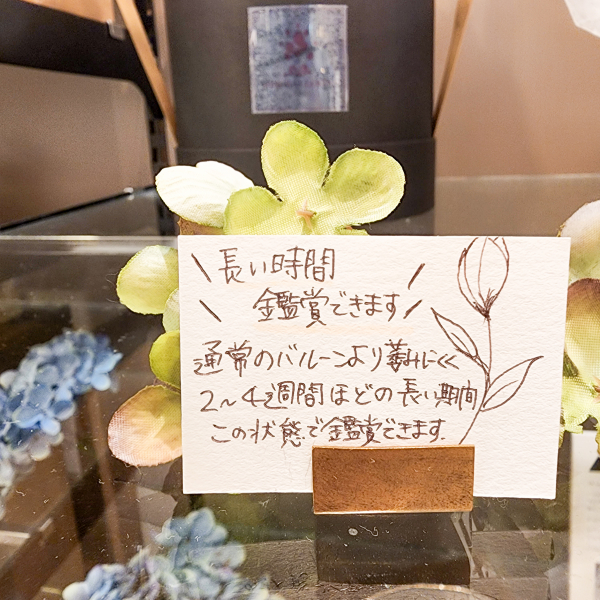 長い時間
鑑賞できます
通常のバルーンより萎みにくく
2〜4週間ほどの長い期間
この状態で鑑賞できます.